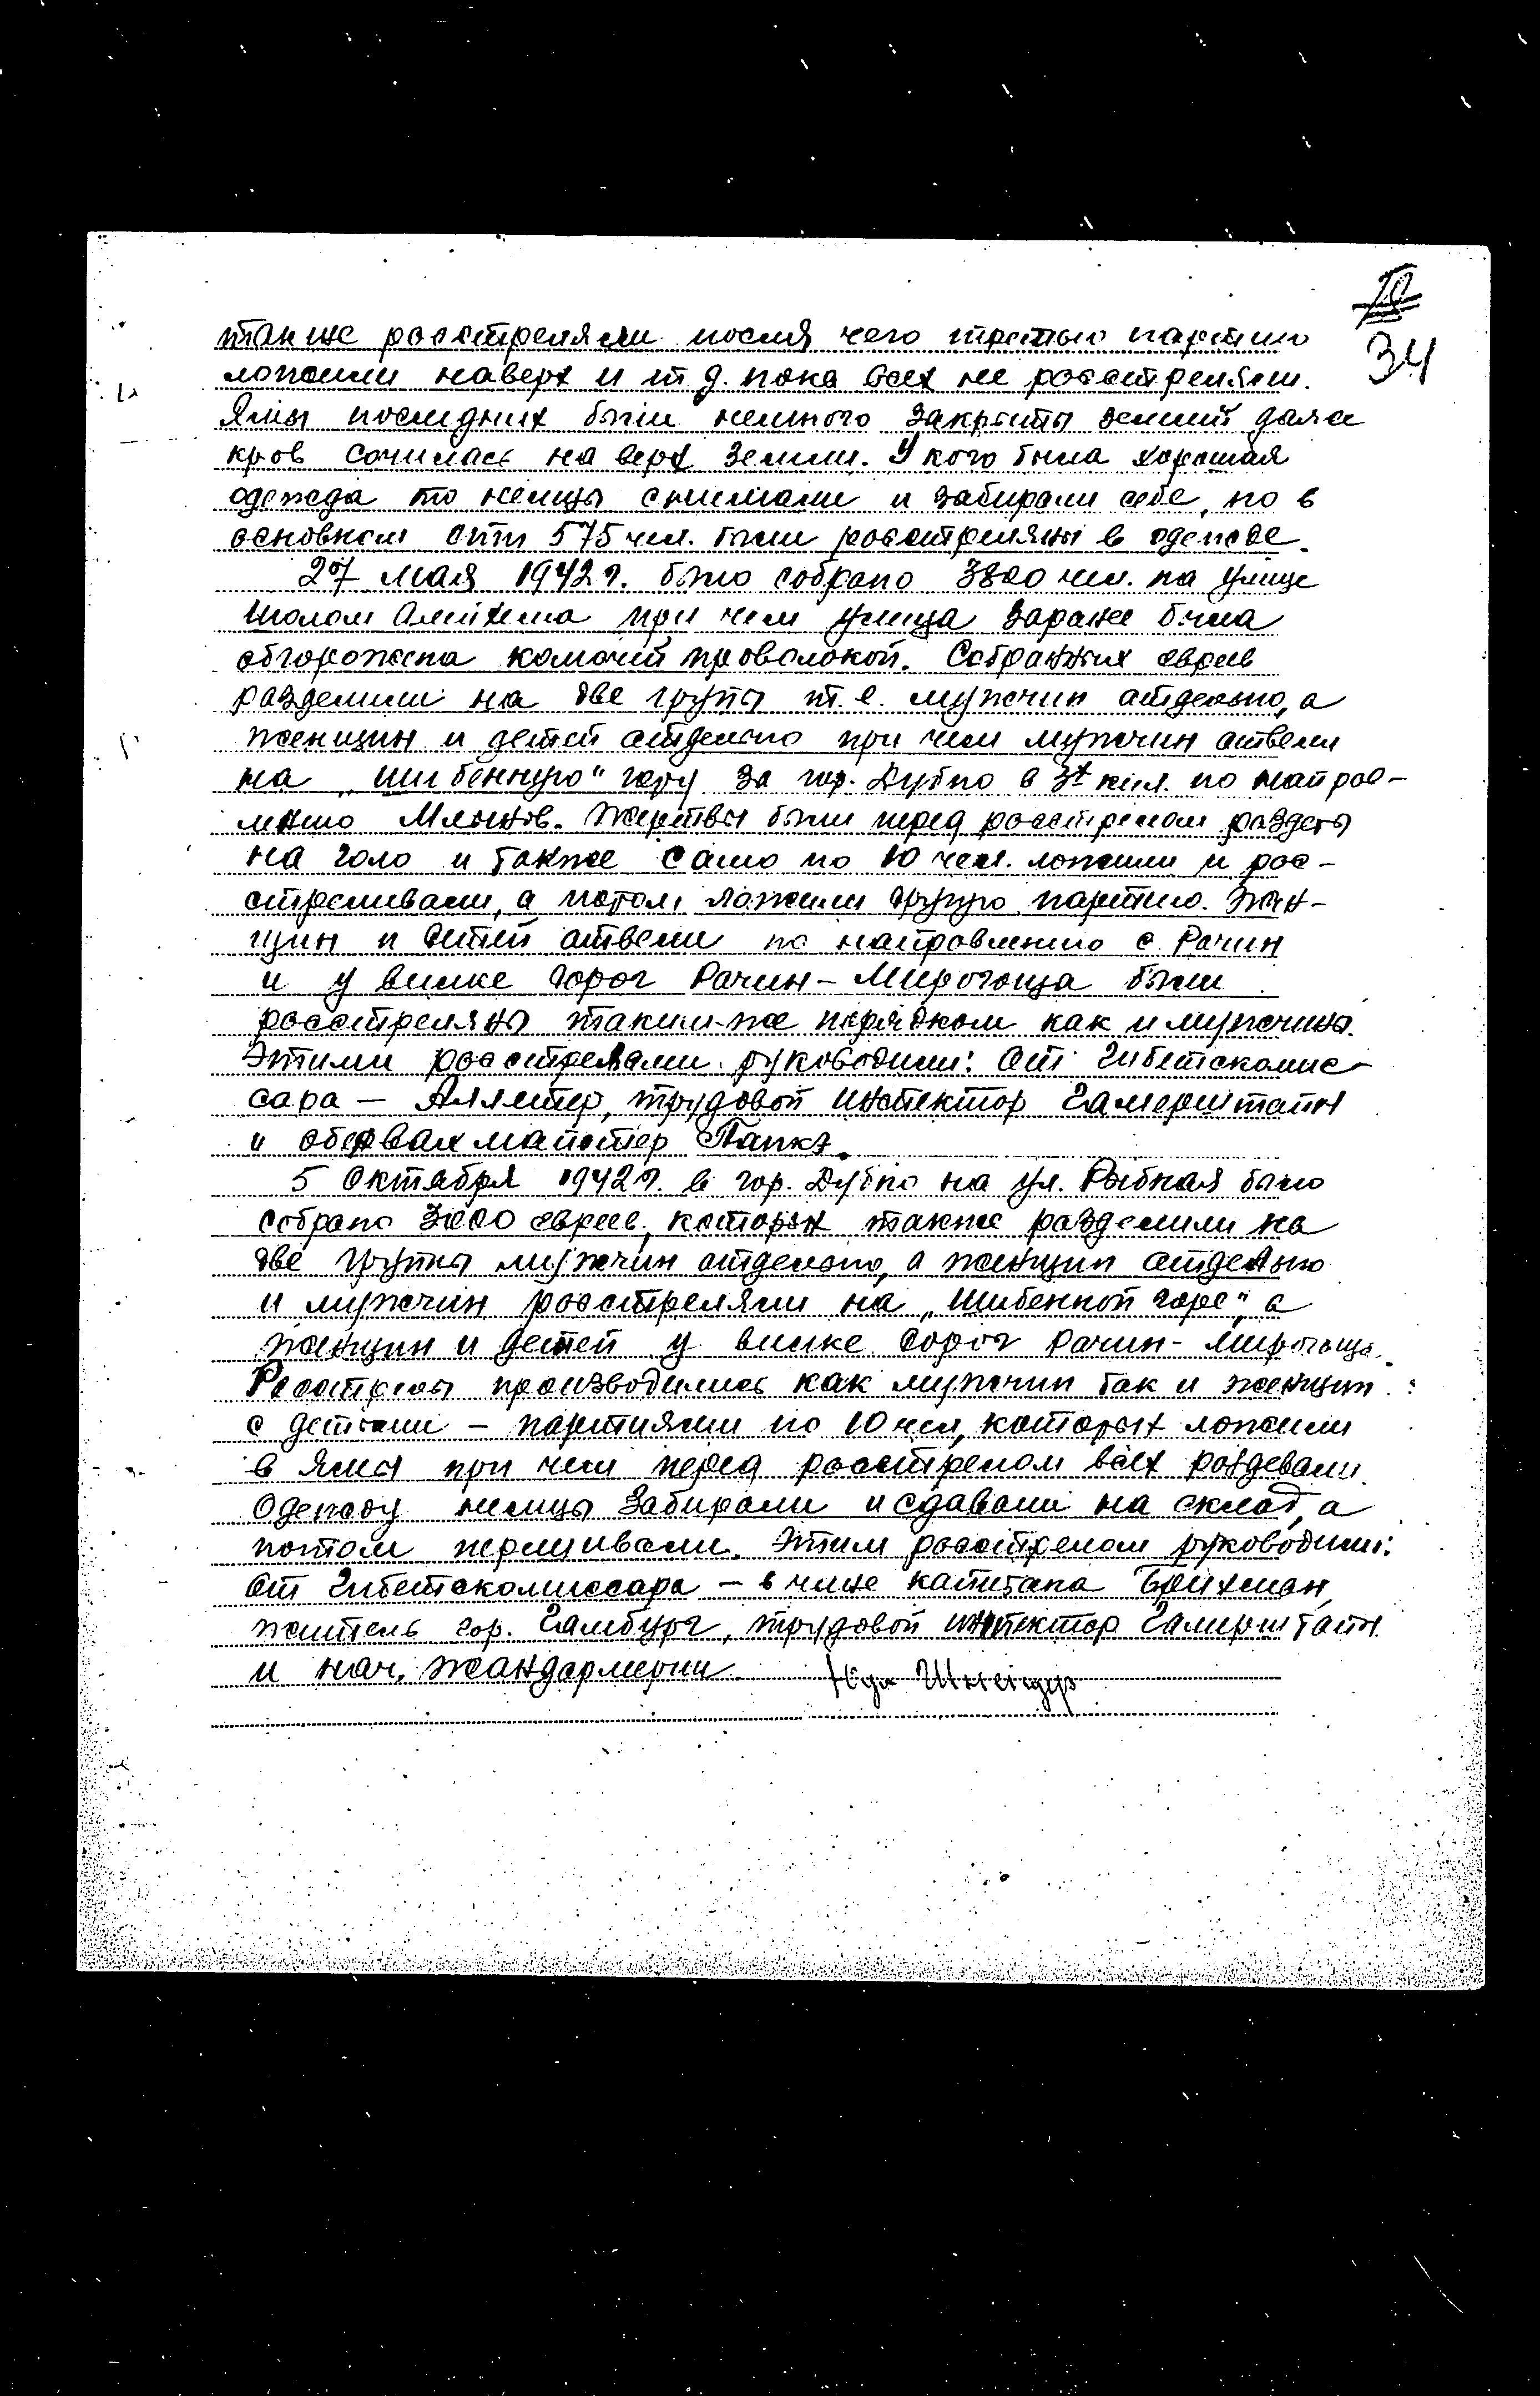 34
также расстреляли после чего третью партию
ложили наверх и т д. пока всех не расстреляли.
Ямы последних были немного закрыты землей даже
кров сочилась на верх земли. У кого была хорошая
одежда то немцы снимали и забирали себе, но в
основном эти 575 чел. были расстреляны в одежде.
27 мая 1942 г. было собрано 3800 чел. на улице
Шолом Алейхема при чем улица заранее была
обгорожена колючей проволокой. Собранных евреев
разделили на две групы т.е. мужчин отдельно, а
женщин и детей отдельно при чем мужчин отвели
на „Шибенную" гору за гор. Дубно в 3х кил. по направ-
лению Млынов. Жертвы были перед расстрелом раздеты
на голо и также само по 10 чел. ложили и рас-
стреливали, а потом ложили другую партию. Жен-
щин и детей отвели по направлению с. Рачин
и у вилке дорог Рачин - Мирогоща были
расстреляны таким-же порядком как и мужчины.
Этими расстрелами руководили: От Гибетскомис-
сара — Аллетер, трудовой инспектор Гамерштайн
и обервахмайстер Папкэ.
5 октября 1942 г. в гор. Дубно на ул. Рыбная было
собрано 3000 евреев, которых также разделили на
две групы мужчин отдельно, а женщин отдельно
и мужчин расстреляли на „Шибенной горе", а
женщин и детей у вилке дорог Рачин - Мирогоща.
Расстрелы производились как мужчин так и женщин
с детьми — партиями по 10 чел, которых ложили
в ямы при чем перед расстрелом всех раздевали
Одежду немцы забирали и сдавали на склад, а
потом перешивали. Этим расстрелом руководили:
От Гибетскомиссара — в чине капитана Брихман,
житель гор. Гамбург, трудовой инспектор Гамерштайн
и нач. жандармерии Шнейдер